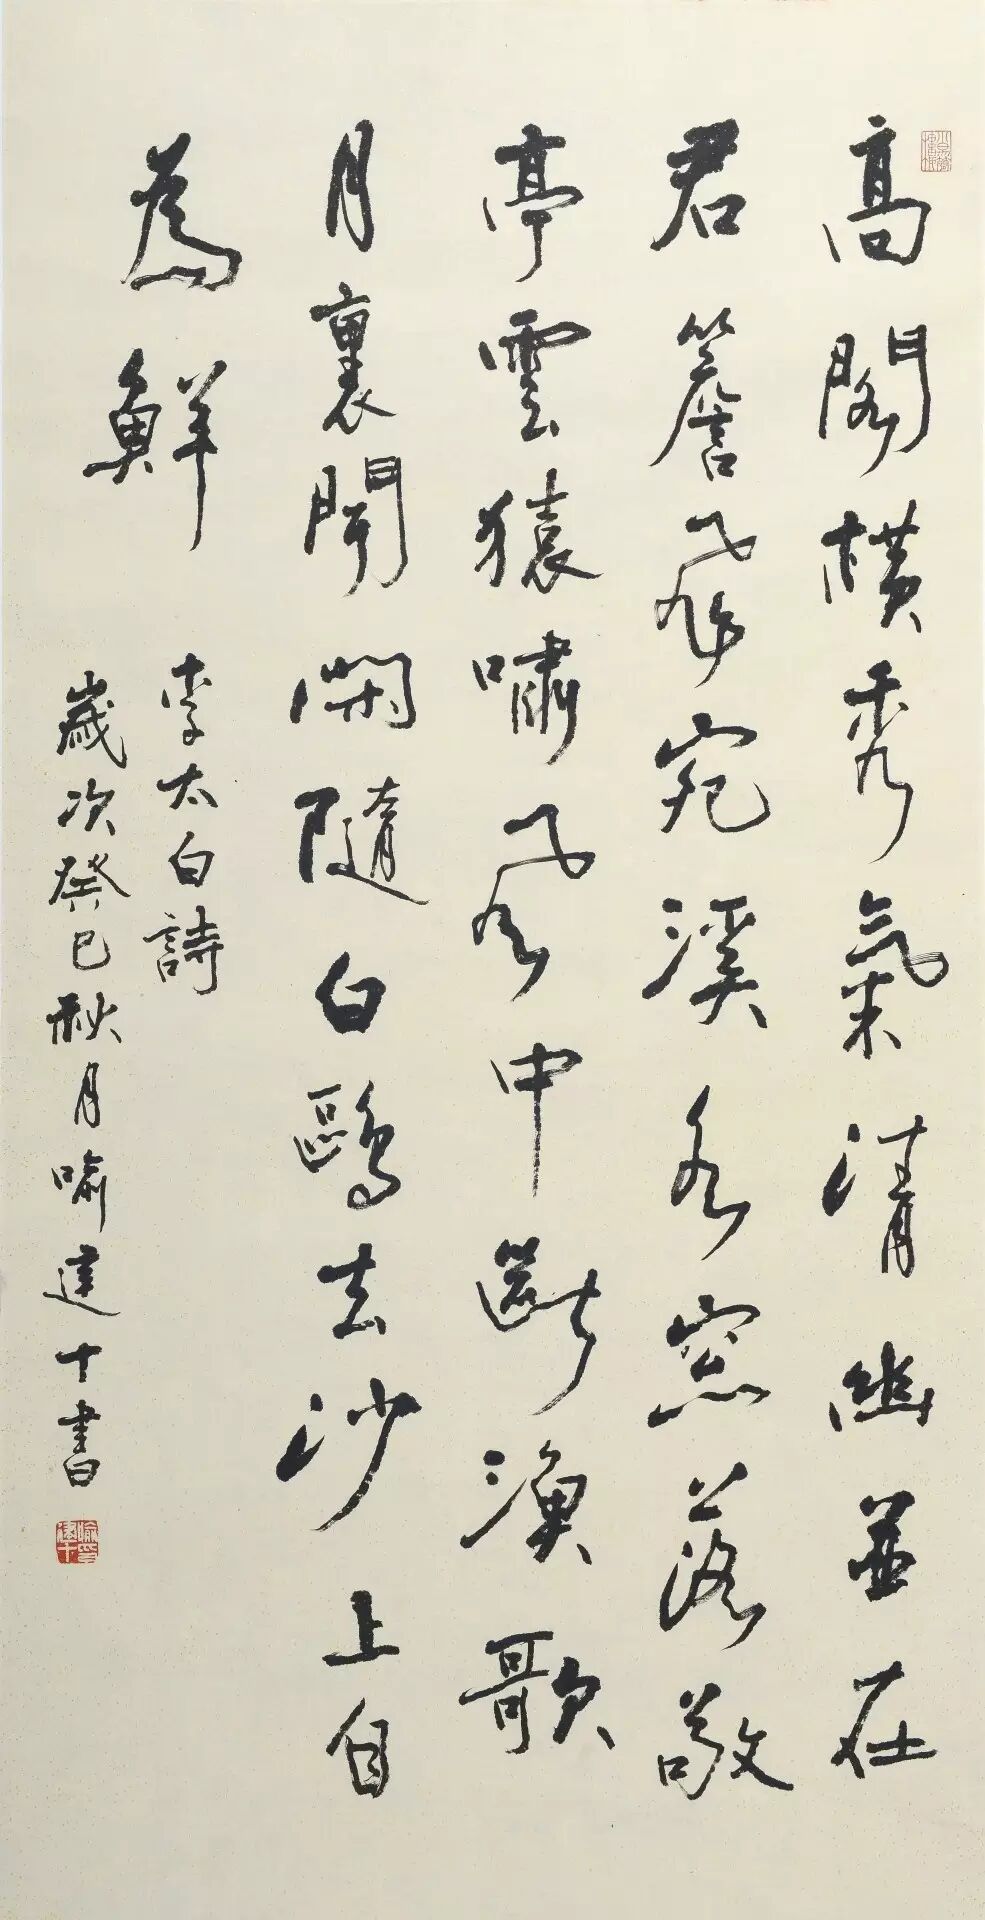 高閣橫秀氣清幽並在
君簷飛宛溪水窓落敬
亭雲猿嘯風中斷漁歌
月裏聞閑隨白鷗去沙上自
為鮮
李太白詩
歲次癸巳秋月喻建十書
喻印建十